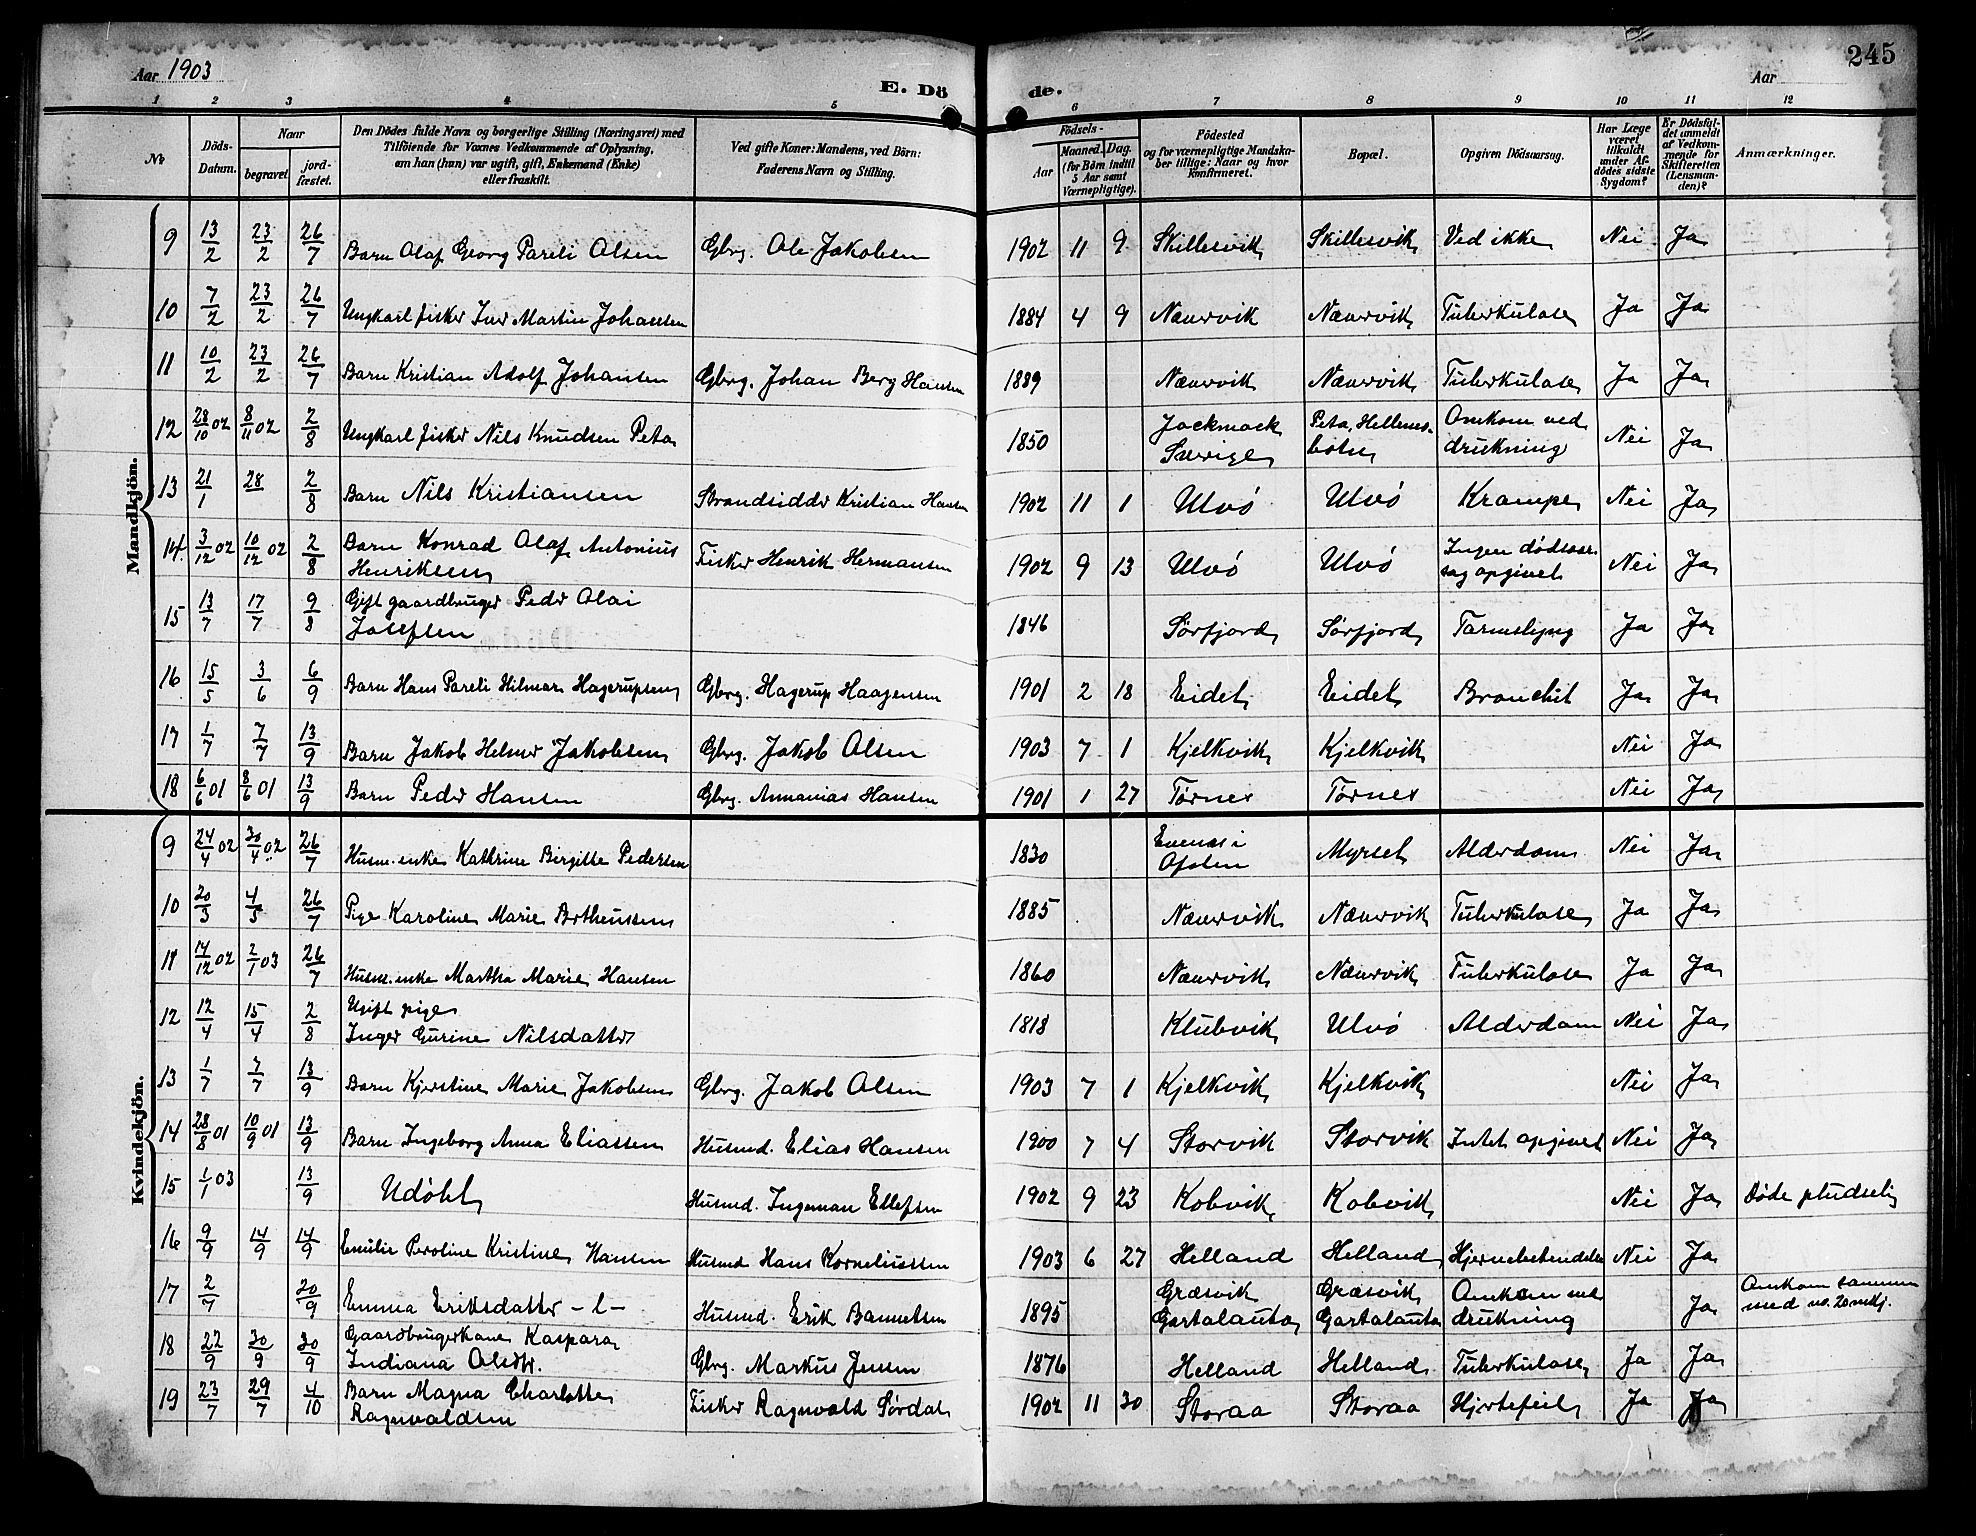 245
Aar 1903
E. Dö de.
Aar
1 2 3 4 5 6 7 8 9 10 11 12
№
Döds-Datum.
Naar
begravet.
jord-fæstet.
Den Dödes fulde Navn og borgerlige Stilling (Næringsvei) med
Tilföiende for Voxnes Vedkommende af Oplysning,
om han (hun) var ugift, gift, Enkemand (Enke)
eller fraskilt.
Ved gifte Koner: Mandens, ved Börn:
Faderens Navn og Stilling.
Födsels-
Aar
Maaned. Dag.
(for Börn indtil
5 Aar samt
Værnepligtige).
Födested
og for værnepligtige Mandska-
ber tillige: Naar og hvor
konfirmeret.
Bopæl.
Opgiven Dödsaarsag.
Har Læge
været
tilkaldt
under Af-
dödes sidste
Sygdom?
Er Dödsfal-
det anmeldt
af Vedkom-
mende for
Skifteretten
(Lensman-
den)?
Anmærkninger.
Mandkjön.
9 13/2 23/2 26/7 Barn Olaf Georg Pareli Olsen Gbrg. Ole Jakobsen 1902 11 9 Skillesvik Skillesvik Ved ikke Nei Ja
10 7/2 23/2 26/7 Ungkarl fisker Iver Martin Johansen 1884 4 9 Næurvik Næurvik Tuberkulose Ja Ja
11 10/2 23/2 26/7 Barn Kristian Adolf Johansen Gbrg. Johan Berg Hansen 1889 Næurvik Næurvik Tuberkulose Ja Ja
12 28/10 02 8/11 02 2/8 Ungkarl fisker Nils Knudsen Peta 1850 Jockmock Sverige Peta, Hellemobotn Omkom ved drukning Nei Ja
13 21/1 28 2/8 Barn Nils Kristiansen Strandsidder Kristian Hansen 1902 11 1 Ulvö Ulvö Krampe Nei Ja
14. 3/12 02 10/12 02 2/8 Barn Konrad Olaf Antonius
Henriksen Fisker Henrik Hermansen 1902 9 13 Ulvö Ulvö Ingen dödsaarsag opgivet Nei Ja
15 13/7 17/7 9/8 Gift gaardbruger Peder Olai
Josefsen 1846 Sörfjord Sörfjord Tarmslyng Ja Ja
16 15/5 3/6 6/9 Barn Hans Pareli Hilmar Hagerupsen Gbrg. Hagerup Haagensen 1901 2 18 Eidet Eidet Bronchit Ja Ja
17 1/7 7/7 13/9 Barn Jakob Helmer Jakobsen Gbrg. Jakob Olsen 1903 7 1 Kjelkvik Kjelkvik Nei Ja
18 6/6 01 8/6 01 13/9 Barn Peder Hansen Gbrg. Annanias Hansen 1901 1 27 Tørnes Tørnes Nei Ja
Kvindekjön.
9 24/4 02 30/4 02 26/7 Husm. enke Kathrine Birgitte Pedersen 1830 Evenes i Ofoten Myrset Alderdom Nei Ja
10 20/3 4/5 26/7 Pige Karoline Marie Bertheussen 1885 Næurvik Næurvik Tuberkulose Ja Ja
11 14/12 02 2/1 03 26/7 Husm. enke Martha Marie Hansen 1860 Næurvik Næurvik Tuberkulose Ja Ja
12 12/4 15/4 2/8 Ugift pige
Inger Gurine Nilsdatter 1818 Klubvik Ulvö Alderdom Nei Ja
13 1/7 7/7 13/9 Barn Kjerstine Marie Jakobsen Gbrg. Jakob Olsen 1903 7 1 Kjelkvik Kjelkvik Nei Ja
14 28/8 01 10/9 01 13/9 Barn Ingeborg Anna Eliassen Husmd. Elias Hansen 1900 7 4 Storvik Storvik Intet opgivet Nei Ja
15 1/1 03 13/9 Udöbt Husmd. Ingeman Ellefsen 1902 9 23 Kobvik Kobvik Nei Ja Döde pludselig
16 9/9 14/9 14/9 Emilie Peroline Kristine Hansen Husmd Hans Korneliussen 1903 6 27 Helland Helland Hjernebetændelse Nei Ja
17 2/7 20/9 Emma Eriksdatter - l - Husmd. Erik Bannetsen 1895 Græsvik Gastalauta Græsvik Gastalauta Omkom ved drukning Ja Omkom sammen
med no. 20 mkj.
18 22/9 30/9 30/9 Gaardbrugerkone Kaspara
Indiana Olsdtr. Gbrg. Markus Jensen 1876 Helland Helland Tuberkulose Ja Ja
19 23/7 29/7 4/10 Barn Magna Charlotte
Ragnvaldsen Fisker Ragnvald Sørdal 1902 11 30 Storaa Storaa Hjertefeil Ja Ja